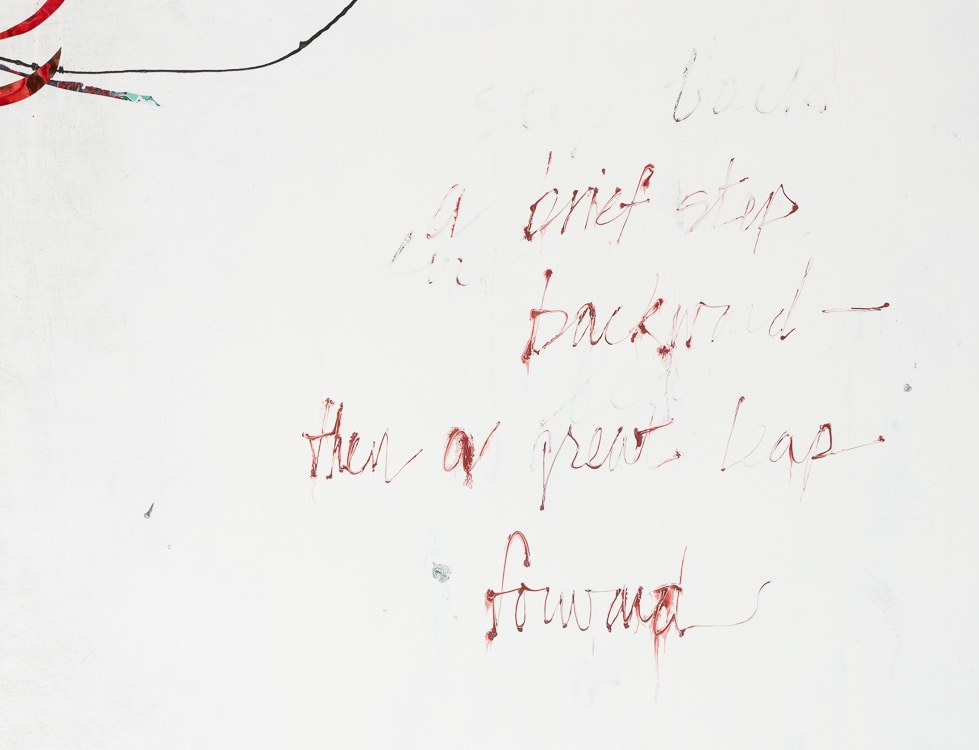 back
a brief step
backward —
then a great leap
forward